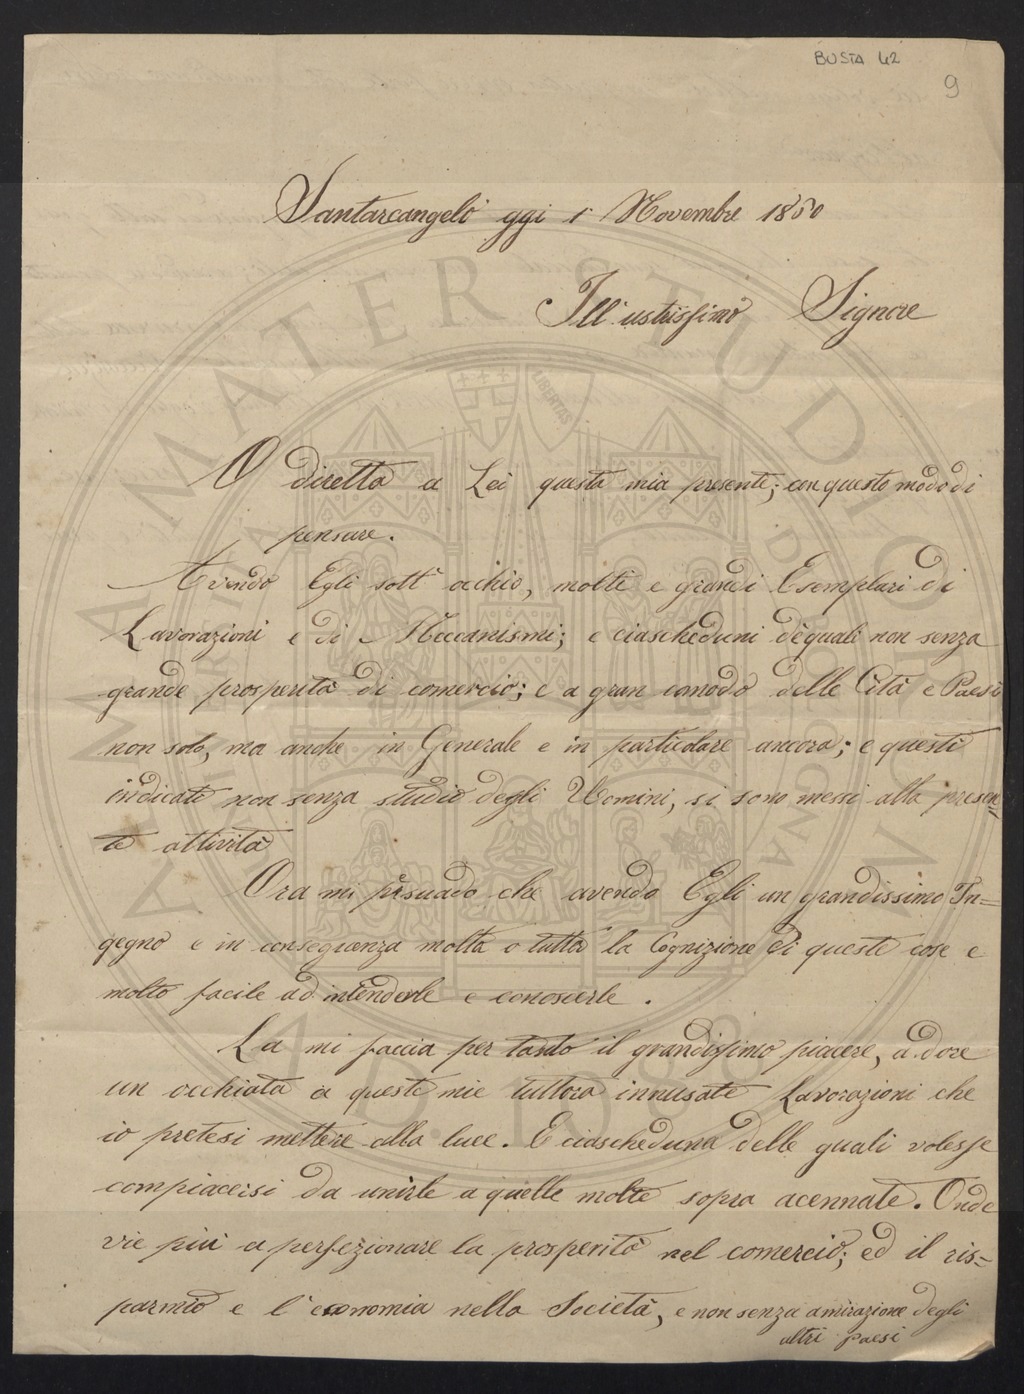 BUSTA 42
9
Santarcangelo ggi 1 Novembre 1850
Ill'ustrissimo Signore
O diretta a Lei questa mia presente; con questo modo di
pensare.
Avendo Egli sott'occhio, molti e grandi Esemplari di
Lavorazioni e di Meccanismi; e ciascheduni de quali non senza
grande prosperità di comercio; e a gran comodo delle Cità e Paesi
non solo, ma anche in Generale e in particolare ancora; e questi
indicati non senza studio degli Uomini, si sono messi alla presen=
te attività
Ora mi persuado che avendo Egli un grandissimo In=
gegno e in conseguenza molta o tutta la Cognizione di queste cose e
molto facile ad intenderle e conoscierle.
La mi faccia per tanto il grandissimo piacere, a dare
un occhiata a queste mie tuttora innusate Lavorazioni che
io pretesi mettere alla luce. E ciascheduna delle quali volesse
compiacersi da unirle a quelle molte sopra acennate. Onde
vie più a perfezionare la prosperità nel comercio; ed il ris=
parmio e l'economia nella Società, e non senza amirazione degli
altri paesi
ALMA MATER STUDIORUM
LIBERTAS
A.D. 1088